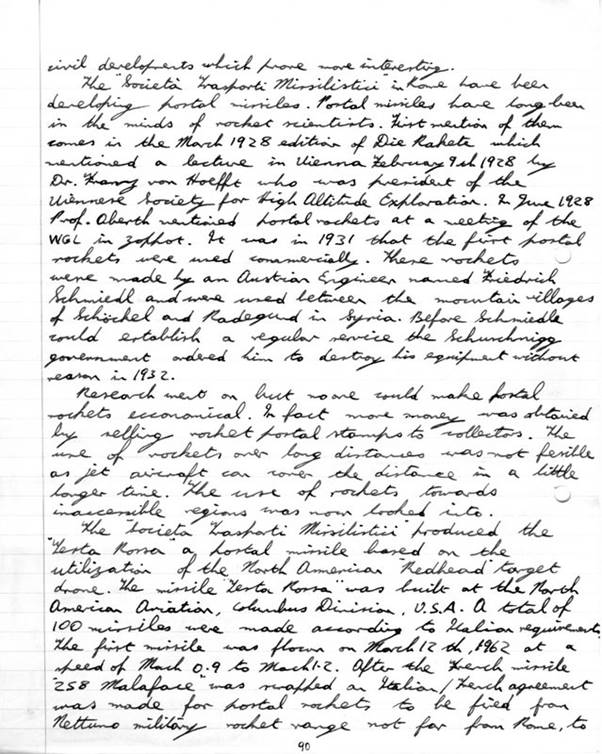 civil developments which prove more interesting.
The "Societa Trasporti Missilistici" in Rome have been
developing postal missiles. Postal missiles have long been
in the minds of rocket scientists. First mention of them
comes in the March 1928 edition of Die Rakete which
mentioned a lecture in Vienna February 9th 1928 by
Dr. Franz von Hoefft who was president of the
Viennese Society for High Altitude Exploration. In June 1928
Prof. Oberth mentioned postal rockets at a meeting of the
WGL in Zoppot. It was in 1931 that the first postal
rockets were used commercially. These rockets
were made by an Austrian Engineer named Friedrich
Schmiedl and were used between the mountain villages
of Schöckel and Radegund in Syria. Before Schmiedle
could establish a regular service the Schuschnigg
government ordered him to destroy his equipment without
reason in 1932.
Research went on but no one could make postal
rockets ecconomical. In fact more money was obtained
by selling rocket postal stamps to collectors. The
use of rockets over long distances was not fesible
as jet aircraft can cover the distance in a little
longer time. The use of rockets towards
inaccessible regions was now looked into.
The "Societa Trasporti Missilistici" produced the
"Testa Rossa" a postal missile based on the
utilization of the North American "Redhead" target
drone. The missile "Testa Rossa" was built at the North
American Aviation, Columbus Division, U.S.A. A total of
100 missiles were made according to Italian requirements.
The first missile was flown on March 12th, 1962 at a
speed of Mach 0.9 to Mach 1.2. After the French missile
"258 Malaface" was scrapped an Italian/French agreement
was made for postal rockets to be fired from
Nettuno military rocket range not far from Rome, to
90